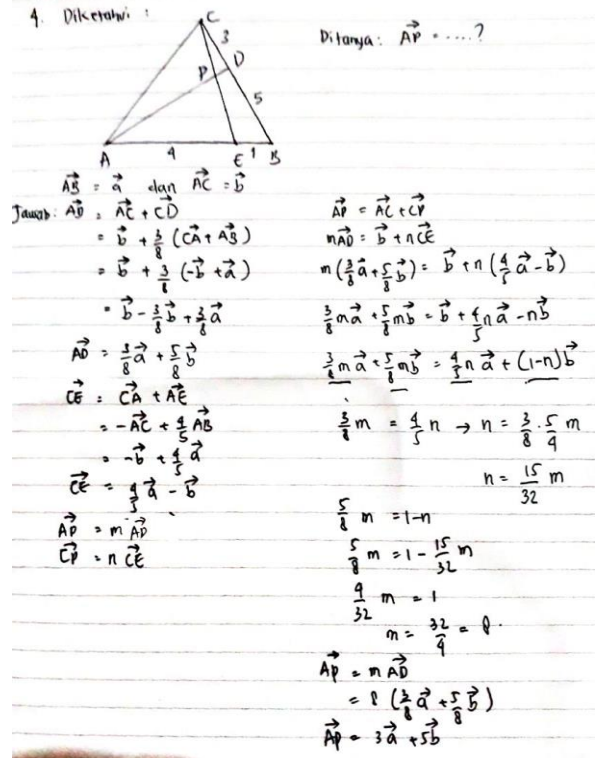 4. Diketahui :
C
3
D
P
5
A
4
E
1
B
Ditanya : AP⃗ = .....?
AB⃗ = a⃗ dan AC⃗ = b⃗
Jawab: AD⃗ = AC⃗ + CD⃗
= b⃗ + 3/8 (CA⃗ + AB⃗)
= b⃗ + 3/8 (-b⃗ + a⃗)
= b⃗ - 3/8 b⃗ + 3/8 a⃗
AD⃗ = 3/8 a⃗ + 5/8 b⃗
CE⃗ = CA⃗ + AE⃗
= -AC⃗ + 4/5 AB⃗
= -b⃗ + 4/5 a⃗
CE⃗ = 4/5 a⃗ - b⃗
AP⃗ = m AD⃗
CP⃗ = n CE⃗
AP⃗ = AC⃗ + CP⃗
mAD⃗ = b⃗ + nCE⃗
m(3/8 a⃗ + 5/8 b⃗) = b⃗ + n(4/5 a⃗ - b⃗)
3/8 m a⃗ + 5/8 m b⃗ = b⃗ + 4/5 n a⃗ - n b⃗
3/8 m a⃗ + 5/8 m b⃗ = 4/5 n a⃗ + (1-n) b⃗
3/8 m = 4/5 n → n = 3/8 · 5/4 m
n = 15/32 m
5/8 m = 1-n
5/8 m = 1 - 15/32 m
4/32 m = 1
m = 32/4 = 8.
AP⃗ = m AD⃗
= 8 (3/8 a⃗ + 5/8 b⃗)
AP⃗ = 3a⃗ + 5b⃗